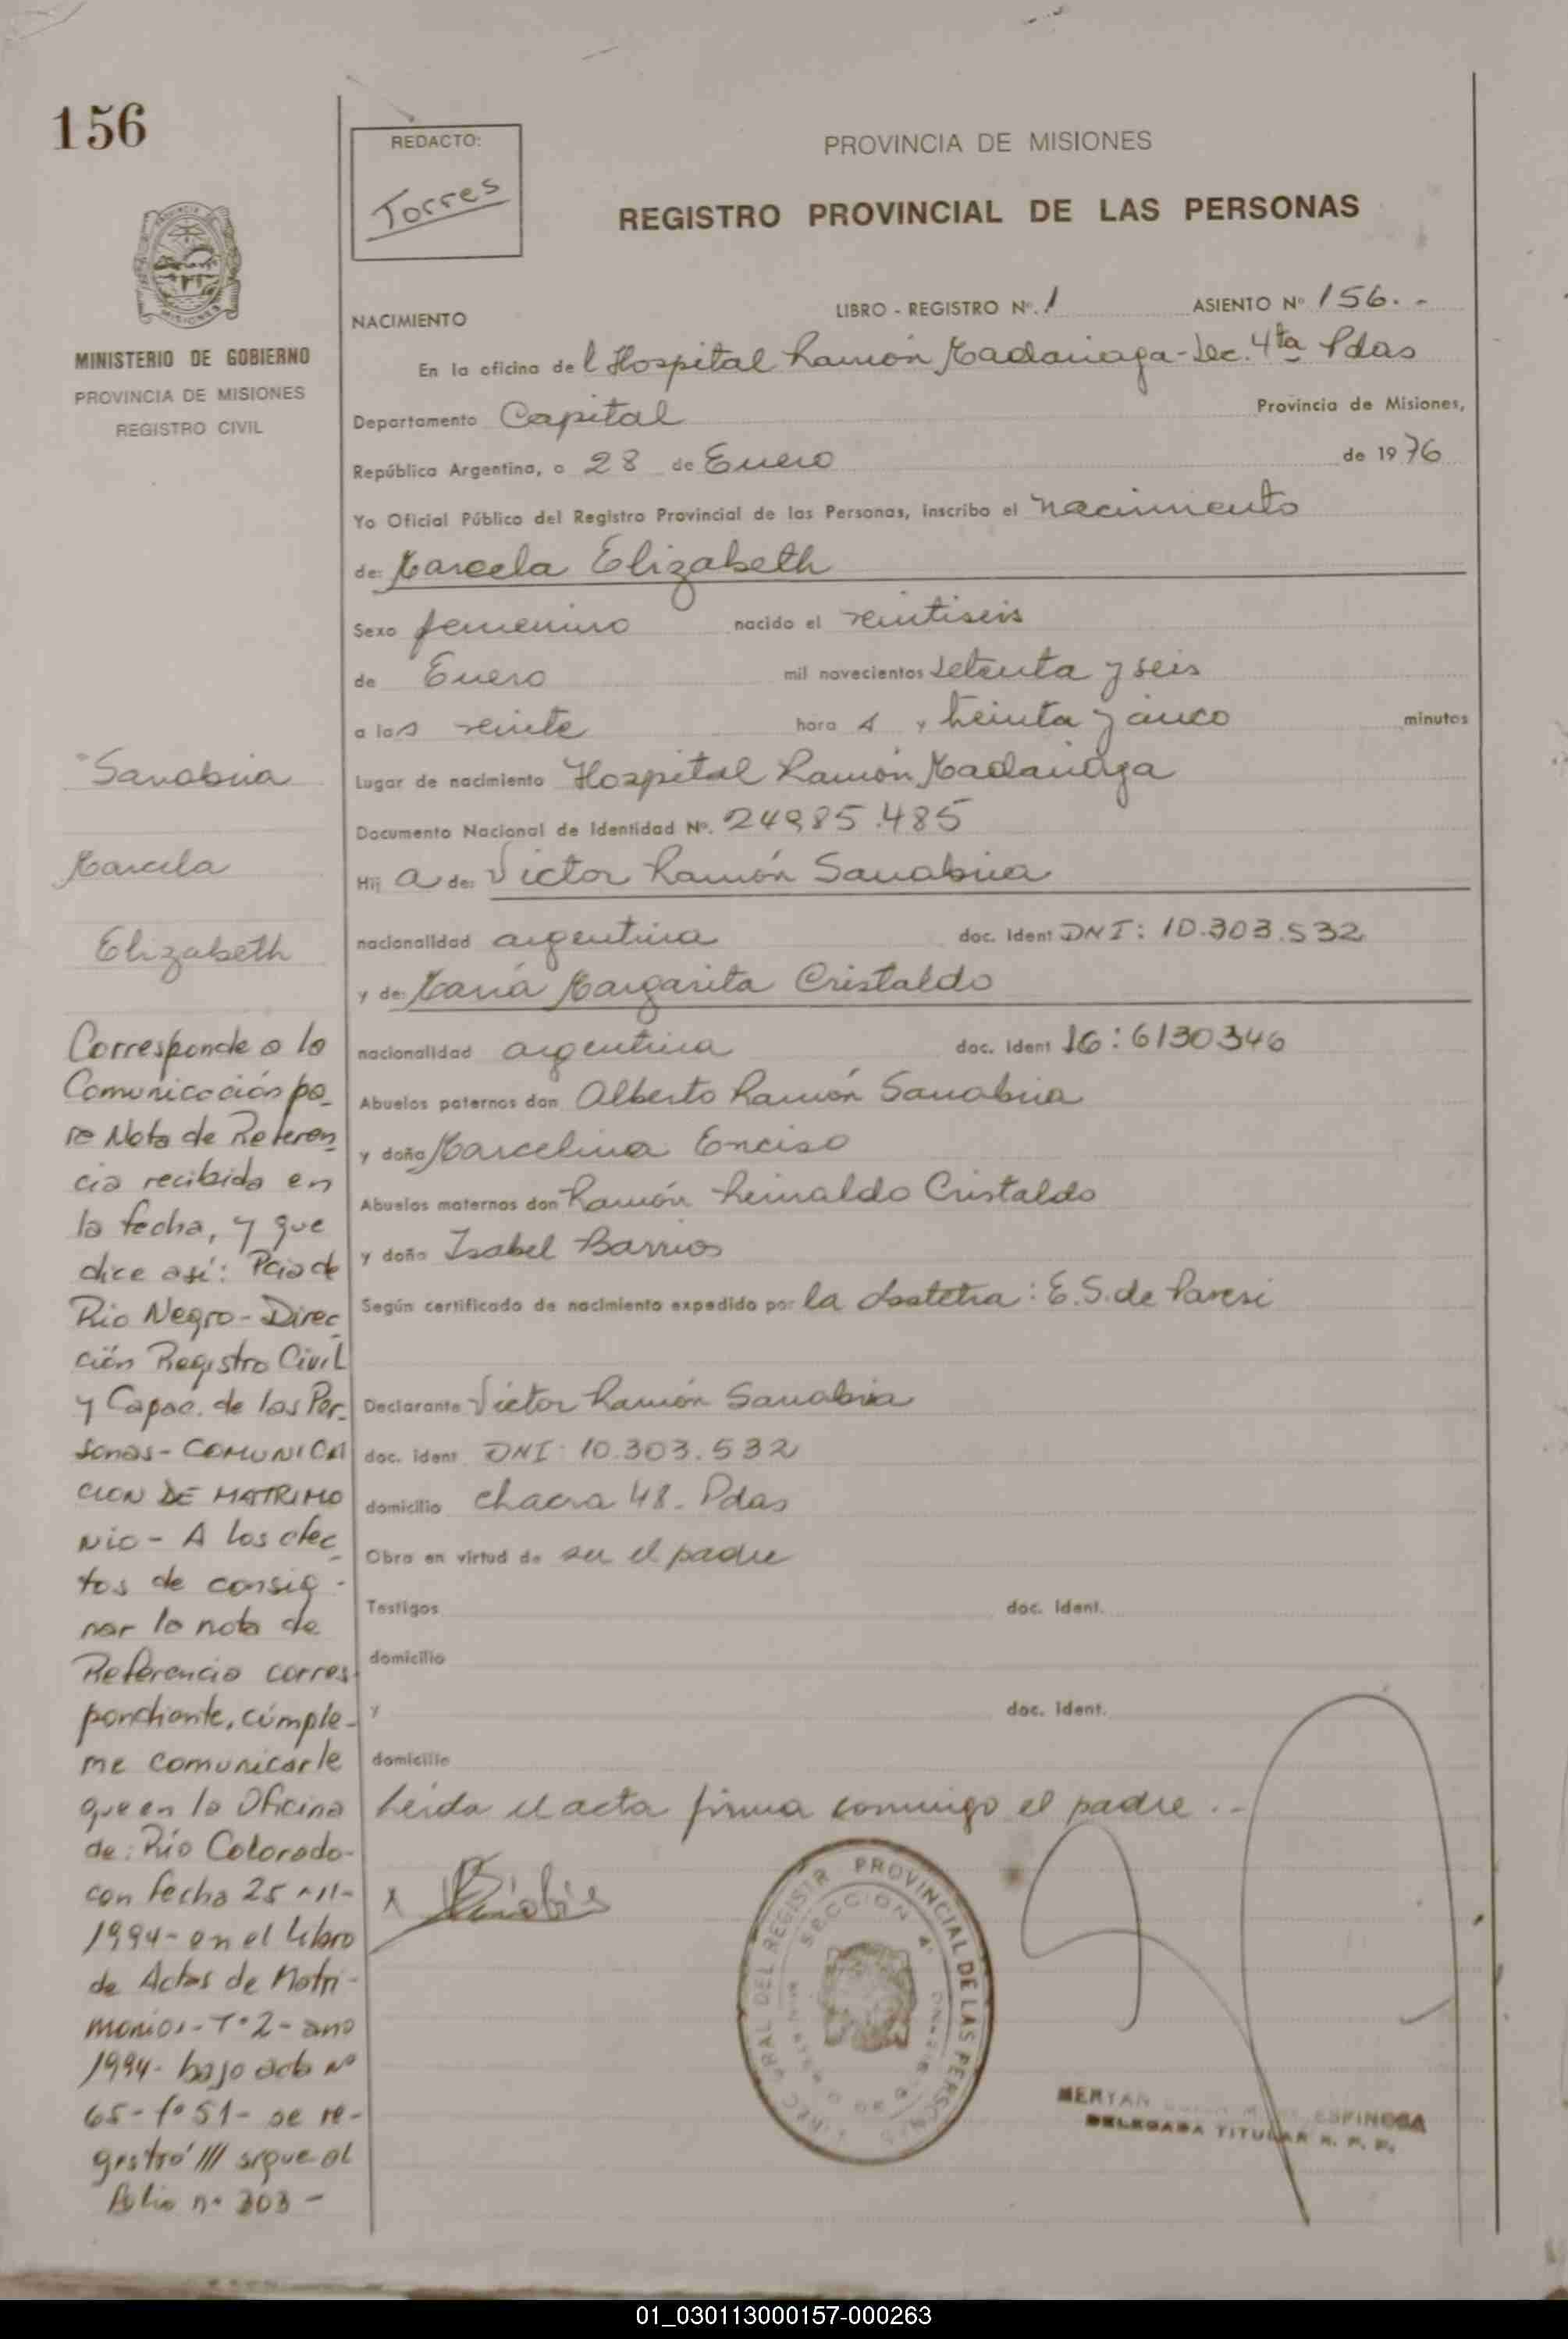 156
MINISTERIO DE GOBIERNO
PROVINCIA DE MISIONES
REGISTRO CIVIL
Sanabria
Marcela
Elizabeth
Corresponde a la
Comunicación pa_
ra Nota de Referen_
cia recibida en
la fecha, y que
dice así: Pcia de
Rio Negro - Direc_
ción Registro Civil
y Capac. de las Per_
sonas - COMUNICA
CION DE MATRIMO
NIO - A los efec_
tos de consig -
nar la nota de
Referencia corres_
pondiente, cúmple_
me comunicarle
que en la Oficina
de: Río Colorado-
con fecha 25-11-
1994- en el Libro
de Actas de Matri-
monios - Tº 2 - año
1994- bajo acta Nº
65 - fº 51 - se re-
gistró /// sigue al
folio nº 303 -
REDACTO:
Torres
PROVINCIA DE MISIONES
REGISTRO PROVINCIAL DE LAS PERSONAS
NACIMIENTO LIBRO - REGISTRO Nº. 1 ASIENTO Nº 156. -
En la oficina del Hospital Ramón Madariaga - Sec. 4ta Pdas
Departamento Capital Provincia de Misiones,
República Argentina, a 28 de Enero de 1976
Yo Oficial Público del Registro Provincial de las Personas, inscribo el nacimiento
de: Marcela Elizabeth
Sexo femenino nacido el veintiseis
de Enero mil novecientos setenta y seis
a las veinte hora s y treinta y cinco minutos
Lugar de nacimiento Hospital Ramón Madariaga
Documento Nacional de Identidad Nº. 24.985.485
Hija de: Victor Ramón Sanabria
nacionalidad argentina doc. Ident DNI: 10.303.532
y de: María Margarita Cristaldo
nacionalidad argentina doc. Ident 6130346
Abuelos paternos don Alberto Ramón Sanabria
y doña Marcelina Enciso
Abuelos maternos don Ramón Reinaldo Cristaldo
y doña Isabel Barrios
Según certificado de nacimiento expedido por la obstetra: E.S. de Paresi
Declarante Victor Ramón Sanabria
doc. ident DNI: 10.303.532
domicilio chacra 48 - Pdas
Obra en virtud de ser el padre
Testigos doc. Ident.
domicilio
y doc. Ident.
domicilio
Leida el acta firma conmigo el padre . -
PROVINCIAL DE LAS PERSONAS
SECCION 4ª
ESPINOSA
DELEGADA TITULAR R. P. P.
01_030113000157-000263